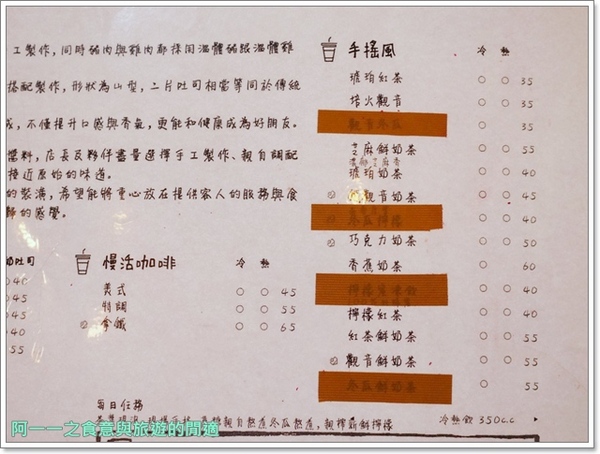 工製作，同時豬肉與雞肉都採用溫體豬跟溫體雞
搭配製作，形狀為山型，二片吐司相當等同於傳統
成，不僅提升口感與香氣，更能和健康成為好朋友。
醬料，店長及夥伴盡量選擇手工製作、親自調配
接近原始的味道。
的裝潢，希望能將重心放在提供客人的服務與食
的感覺。
奶吐司
40
45
55
50
40
55
慢活咖啡 冷 熱
美式 45
特調 55
拿鐵 65
手搖風 冷 熱
琥珀紅茶 35
焙火觀音 35
觀音冬瓜 35
芝麻鮮奶茶 55
琥珀奶茶 40
觀音奶茶 45
40
巧克力奶茶 50
香蕉奶茶 60
40
檸檬紅茶 40
紅茶鮮奶茶 55
觀音鮮奶茶 55
冬瓜鮮奶茶 55
冷熱飲 350c.c
每日任務
親自熬煮冬瓜熬煮，親榨新鮮檸檬
阿一一之食意與旅遊的閒適